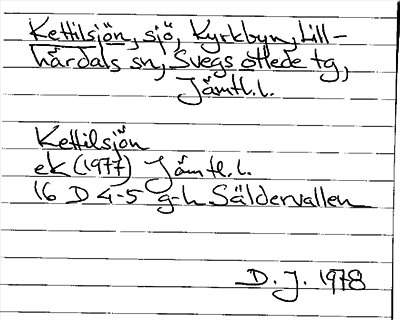 Kettilsjön, sjö, Kyrkbyn, Lill-
härdals sn, Svegs ottede tg,
Jämtl.l.
Kettilsjön
ek (1977) Jämtl.l.
16 D 4-5 g-h Säldervallen
D. J. 1978